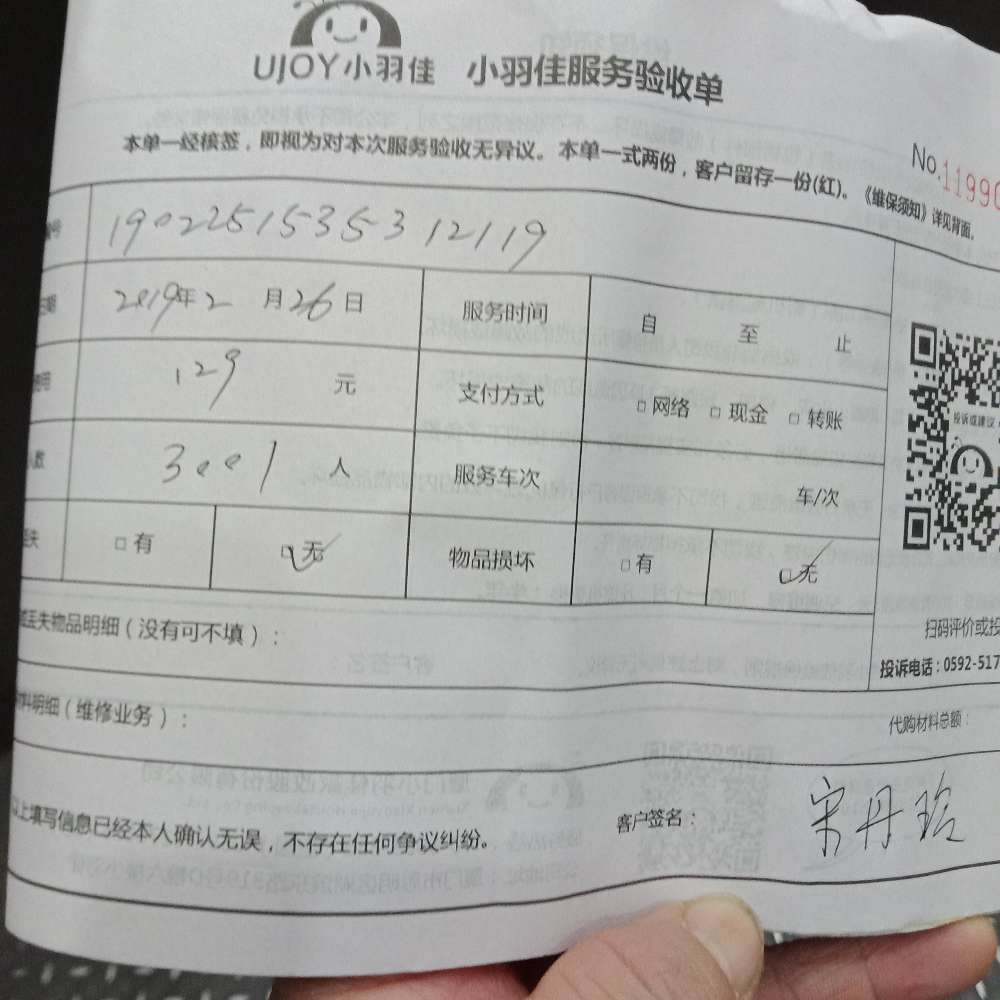 UJOY小羽佳 小羽佳服务验收单
本单一经核签，即视为对本次服务验收无异议。本单一式两份，客户留存一份(红)。《维保须知》详见背面。
No.11990
号 1902251535312119
期 2019年2月26日 服务时间 自 至 止
用 129 元 支付方式 □网络 □现金 □转账
人数 3001 人 服务车次 车/次
丢失 □有 □无 物品损坏 □有 □无
投诉或建议
扫码评价或投
投诉电话：0592-517
丢失物品明细（没有可不填）：
材料明细（维修业务）：
代购材料总额：
以上填写信息已经本人确认无误，不存在任何争议纠纷。 客户签名： 宋丹玲